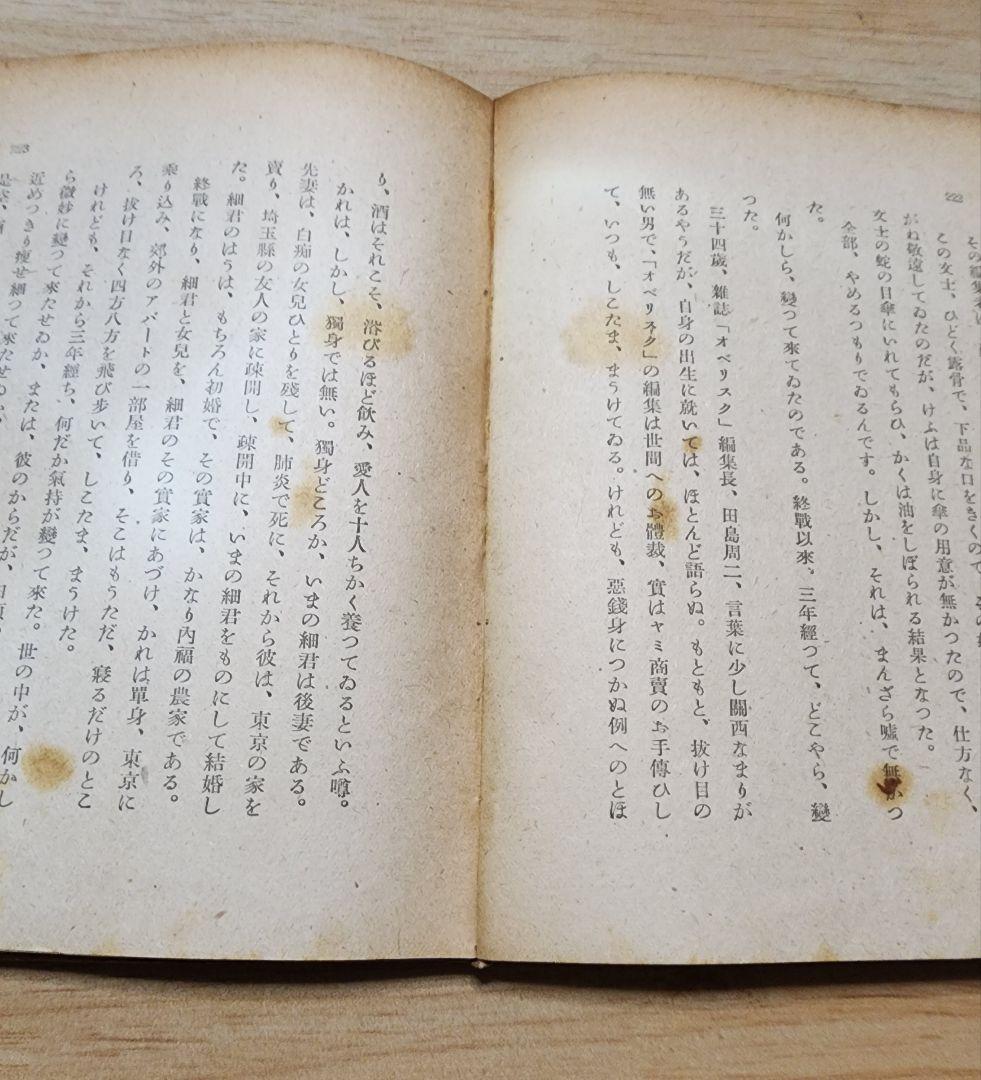 222
この女士、ひどく露骨で、下品な口をきくので、その
がね敬遠してゐたのだが、けふは自身に傘の用意が無かつたので、仕方なく、
女士の蛇の目傘にいれてもらひ、かくは油をしぼられる結果となつた。
全部、やめるつもりでゐるんです。しかし、それは、まんざら嘘で無かつ
た。
何かしら、變つて來てゐたのである。終戰以來、三年經つて、どこやら、變
つた。
三十四歳、雜誌「オベリスク」編集長、田島周二、言葉に少し關西なまりが
あるやうだが、自身の出生に就いては、ほとんど語らぬ。もともと、抜け目の
無い男で、「オベリスク」の編集は世間へのお體裁、實はヤミ商賣のお手傳ひし
て、いつも、しこたま、まうけてゐる。けれども、惡錢身につかぬ例へのとほ
223
り、酒はそれこそ、浴びるほど飮み、愛人を十人ちかく養つてゐるといふ噂。
かれは、しかし、獨身では無い。獨身どころか、いまの細君は後妻である。
先妻は、白痴の女兒ひとりを殘して、肺炎で死に、それから彼は、東京の家を
賣り、埼玉縣の友人の家に疎開し、疎開中に、いまの細君をものにして結婚し
た。細君のはうは、もちろん初婚で、その實家は、かなり内福の農家である。
終戰になり、細君と女兒を、細君のその實家にあづけ、かれは單身、東京に
乘り込み、郊外のアパートの一部屋を借り、そこはもうただ、寢るだけのとこ
ろ、抜け目なく四方八方を飛び歩いて、しこたま、まうけた。
けれども、それから三年經ち、何だか氣持が變つて來た。世の中が、何かし
ら微妙に變つて來たせゐか、または、彼のからだが、
近めつきり痩せ細つて來たせゐか、